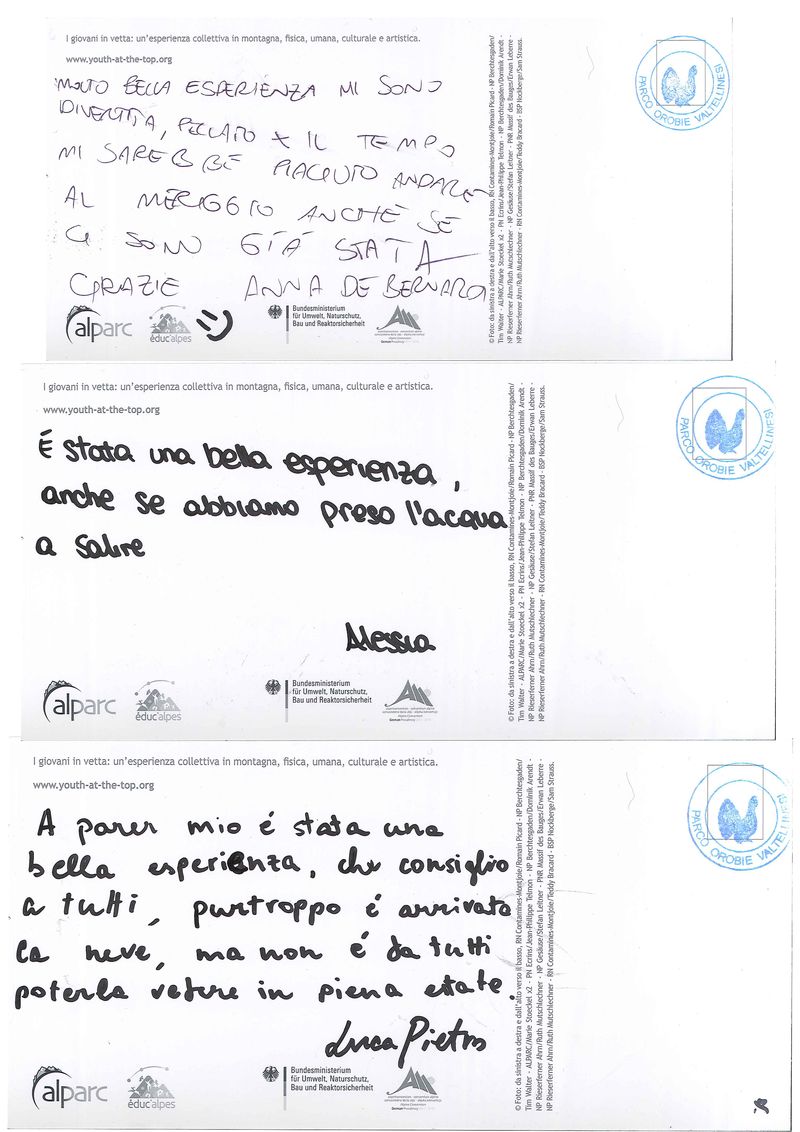 I giovani in vetta: un'esperienza collettiva in montagna, fisica, umana, culturale e artistica.
www.youth-at-the-top.org
MOLTO BELLA ESPERIENZA MI SONO
DIVERTITA, PECCATO X IL TEMPO
MI SAREBBE PIACIUTO ANDARE
AL MERIGGIO ANCHE SE
CI SONO GIÁ STATA
GRAZIE ANNA DE BERNARDI
alparc
éduc'alpes
Bundesministerium
für Umwelt, Naturschutz,
Bau und Reaktorsicherheit
© Foto: da sinistra a destra e dall'alto verso il basso, RN Contamines-Montjoie/Romain Picard - NP Berchtesgaden/
Tim Walter - ALPARC/Marie Stoeckel x2 - PN Ecrins/Jean-Philippe Telmon - NP Berchtesgaden/Dominik Arendt -
NP Rieserferner Ahrn/Ruth Mutschlechner - NP Gesäuse/Stefan Leitner - PNR Massif des Bauges/Erwan Leberre -
NP Rieserferner Ahrn/Ruth Mutschlechner - RN Contamines-Montjoie/Teddy Bracard - BSP Hockberge/Sam Strauss.
PARCO OROBIE VALTELLINESI
I giovani in vetta: un'esperienza collettiva in montagna, fisica, umana, culturale e artistica.
www.youth-at-the-top.org
É stata una bella esperienza,
anche se abbiamo preso l'acqua
a salire
Alessia
alparc
éduc'alpes
Bundesministerium
für Umwelt, Naturschutz,
Bau und Reaktorsicherheit
© Foto: da sinistra a destra e dall'alto verso il basso, RN Contamines-Montjoie/Romain Picard - NP Berchtesgaden/
Tim Walter - ALPARC/Marie Stoeckel x2 - PN Ecrins/Jean-Philippe Telmon - NP Berchtesgaden/Dominik Arendt -
NP Rieserferner Ahrn/Ruth Mutschlechner - NP Gesäuse/Stefan Leitner - PNR Massif des Bauges/Erwan Leberre -
NP Rieserferner Ahrn/Ruth Mutschlechner - RN Contamines-Montjoie/Teddy Bracard - BSP Hockberge/Sam Strauss.
PARCO OROBIE VALTELLINESI
I giovani in vetta: un'esperienza collettiva in montagna, fisica, umana, culturale e artistica.
www.youth-at-the-top.org
A parer mio é stata una
bella esperienza, che consiglio
a tutti, purtroppo é arrivata
la neve, ma non é da tutti
poterla vedere in piena estate.
Luca Pietro
alparc
éduc'alpes
Bundesministerium
für Umwelt, Naturschutz,
Bau und Reaktorsicherheit
© Foto: da sinistra a destra e dall'alto verso il basso, RN Contamines-Montjoie/Romain Picard - NP Berchtesgaden/
Tim Walter - ALPARC/Marie Stoeckel x2 - PN Ecrins/Jean-Philippe Telmon - NP Berchtesgaden/Dominik Arendt -
NP Rieserferner Ahrn/Ruth Mutschlechner - NP Gesäuse/Stefan Leitner - PNR Massif des Bauges/Erwan Leberre -
NP Rieserferner Ahrn/Ruth Mutschlechner - RN Contamines-Montjoie/Teddy Bracard - BSP Hockberge/Sam Strauss.
PARCO OROBIE VALTELLINESI